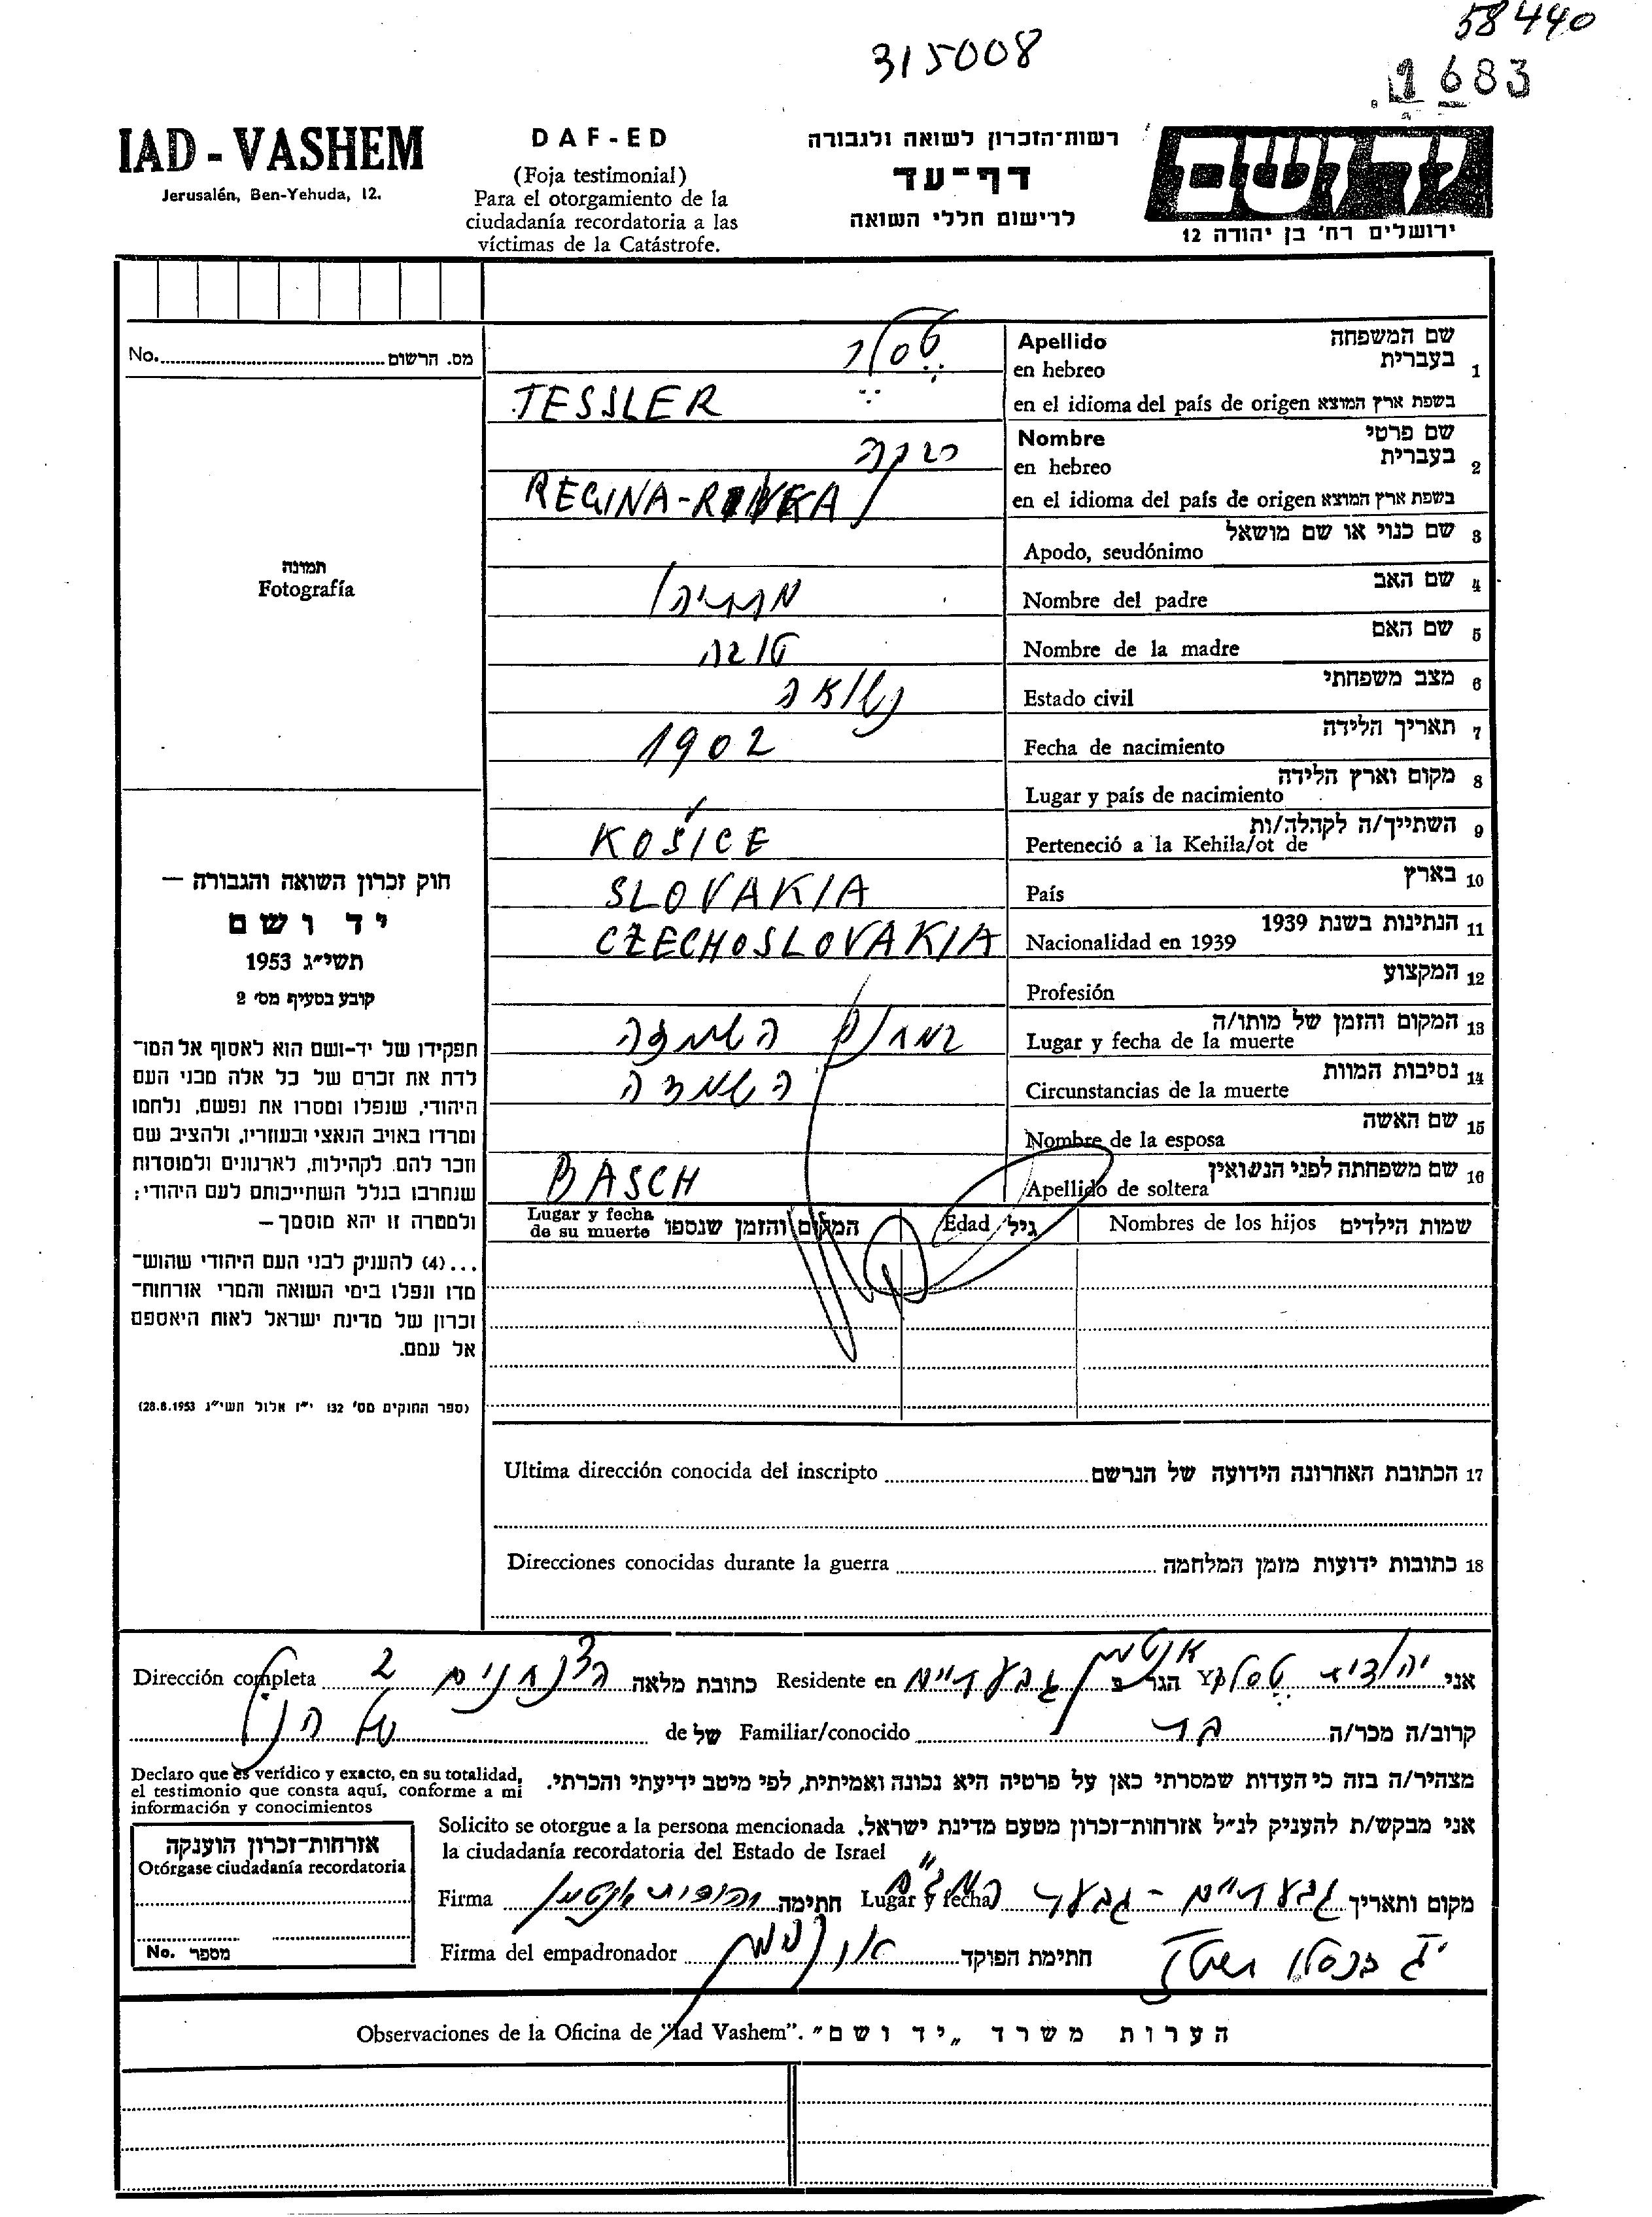 58440
315008
1683
IAD - VASHEM
Jerusalén, Ben-Yehuda, 12.
DAF-ED
(Foja testimonial)
Para el otorgamiento de la
ciudadanía recordatoria a las
víctimas de la Catástrofe.
רשות־הזכרון לשואה ולגבורה
דף־עד
לרישום חללי השואה
יד ושם
ירושלים רח' בן יהודה 12
No. מס. הרשום
תמונה
Fotografía
1 שם המשפחה
בעברית
Apellido
en hebreo
טסלר
en el idioma del país de origen בשפת ארץ המוצא
TESSLER
2 שם פרטי
בעברית
Nombre
en hebreo
רבקה
en el idioma del país de origen בשפת ארץ המוצא
REGINA-RIVKA
3 שם כנוי או שם מושאל
Apodo, seudónimo
4 שם האב
Nombre del padre
5 שם האם
Nombre de la madre
טובה
6 מצב משפחתי
Estado civil
נשואה
7 תאריך הלידה
Fecha de nacimiento
1902
8 מקום וארץ הלידה
Lugar y país de nacimiento
9 השתייך/ה לקהלה/ות
Perteneció a la Kehila/ot de
KOŠICE
10 בארץ
País
SLOVAKIA
11 הנתינות בשנת 1939
Nacionalidad en 1939
CZECHOSLOVAKIA
12 המקצוע
Profesión
13 המקום והזמן של מותו/ה
Lugar y fecha de la muerte
במחנק השמדה
14 נסיבות המוות
Circunstancias de la muerte
השמדה
15 שם האשה
Nombre de la esposa
16 שם משפחתה לפני הנשואין
Apellido de soltera
BASCH
שמות הילדים Nombres de los hijos
גיל Edad
המקום והזמן שנספו Lugar y fecha
de su muerte
חוק זכרון השואה והגבורה —
יד ושם
תשי״ג 1953
קובע בסעיף מס' 2
תפקידו של יד-ושם הוא לאסוף אל המו־
לדת את זכרם של כל אלה מבני העם
היהודי, שנפלו ומסרו את נפשם, נלחמו
ומרדו באויב הנאצי ובעוזריו, ולהציב שם
וזכר להם, לקהילות, לארגונים ולמוסדות
שנחרבו בגלל השתייכותם לעם היהודי;
ולמטרה זו יהא מוסמך —
...(4) להעניק לבני העם היהודי שהוש־
מדו ונפלו בימי השואה והמרי אזרחות־
זכרון של מדינת ישראל לאות היאספם
אל עמם.
(ספר החוקים מס' 132 י״ז אלול תשי״ג 28.8.1953)
17 הכתובת האחרונה הידועה של הנרשם Ultima dirección conocida del inscripto
18 כתובות ידועות מזמן המלחמה Direcciones conocidas durante la guerra
אני יהודית טסלר Yo הגר ב גבעתיים Residente en כתובת מלאה הצנחנים 2 Dirección completa
קרוב/ה מכר/ה בת Familiar/conocido של de של הנ״ל
מצהיר/ה בזה כי העדות שמסרתי כאן על פרטיה היא נכונה ואמיתית, לפי מיטב ידיעתי והכרתי.
Declaro que es verídico y exacto, en su totalidad,
el testimonio que consta aquí, conforme a mi
información y conocimientos
אני מבקש/ת להעניק לנ״ל אזרחות־זכרון מטעם מדינת ישראל. Solicito se otorgue a la persona mencionada
la ciudadanía recordatoria del Estado de Israel
אזרחות־זכרון הוענקה
Otórgase ciudadanía recordatoria
No. מספר
מקום ותאריך גבעתיים - Lugar y fecha חתימה Firma
חתימת הפוקד Firma del empadronador
הערות משרד „יד ושם״ Observaciones de la Oficina de "Iad Vashem".